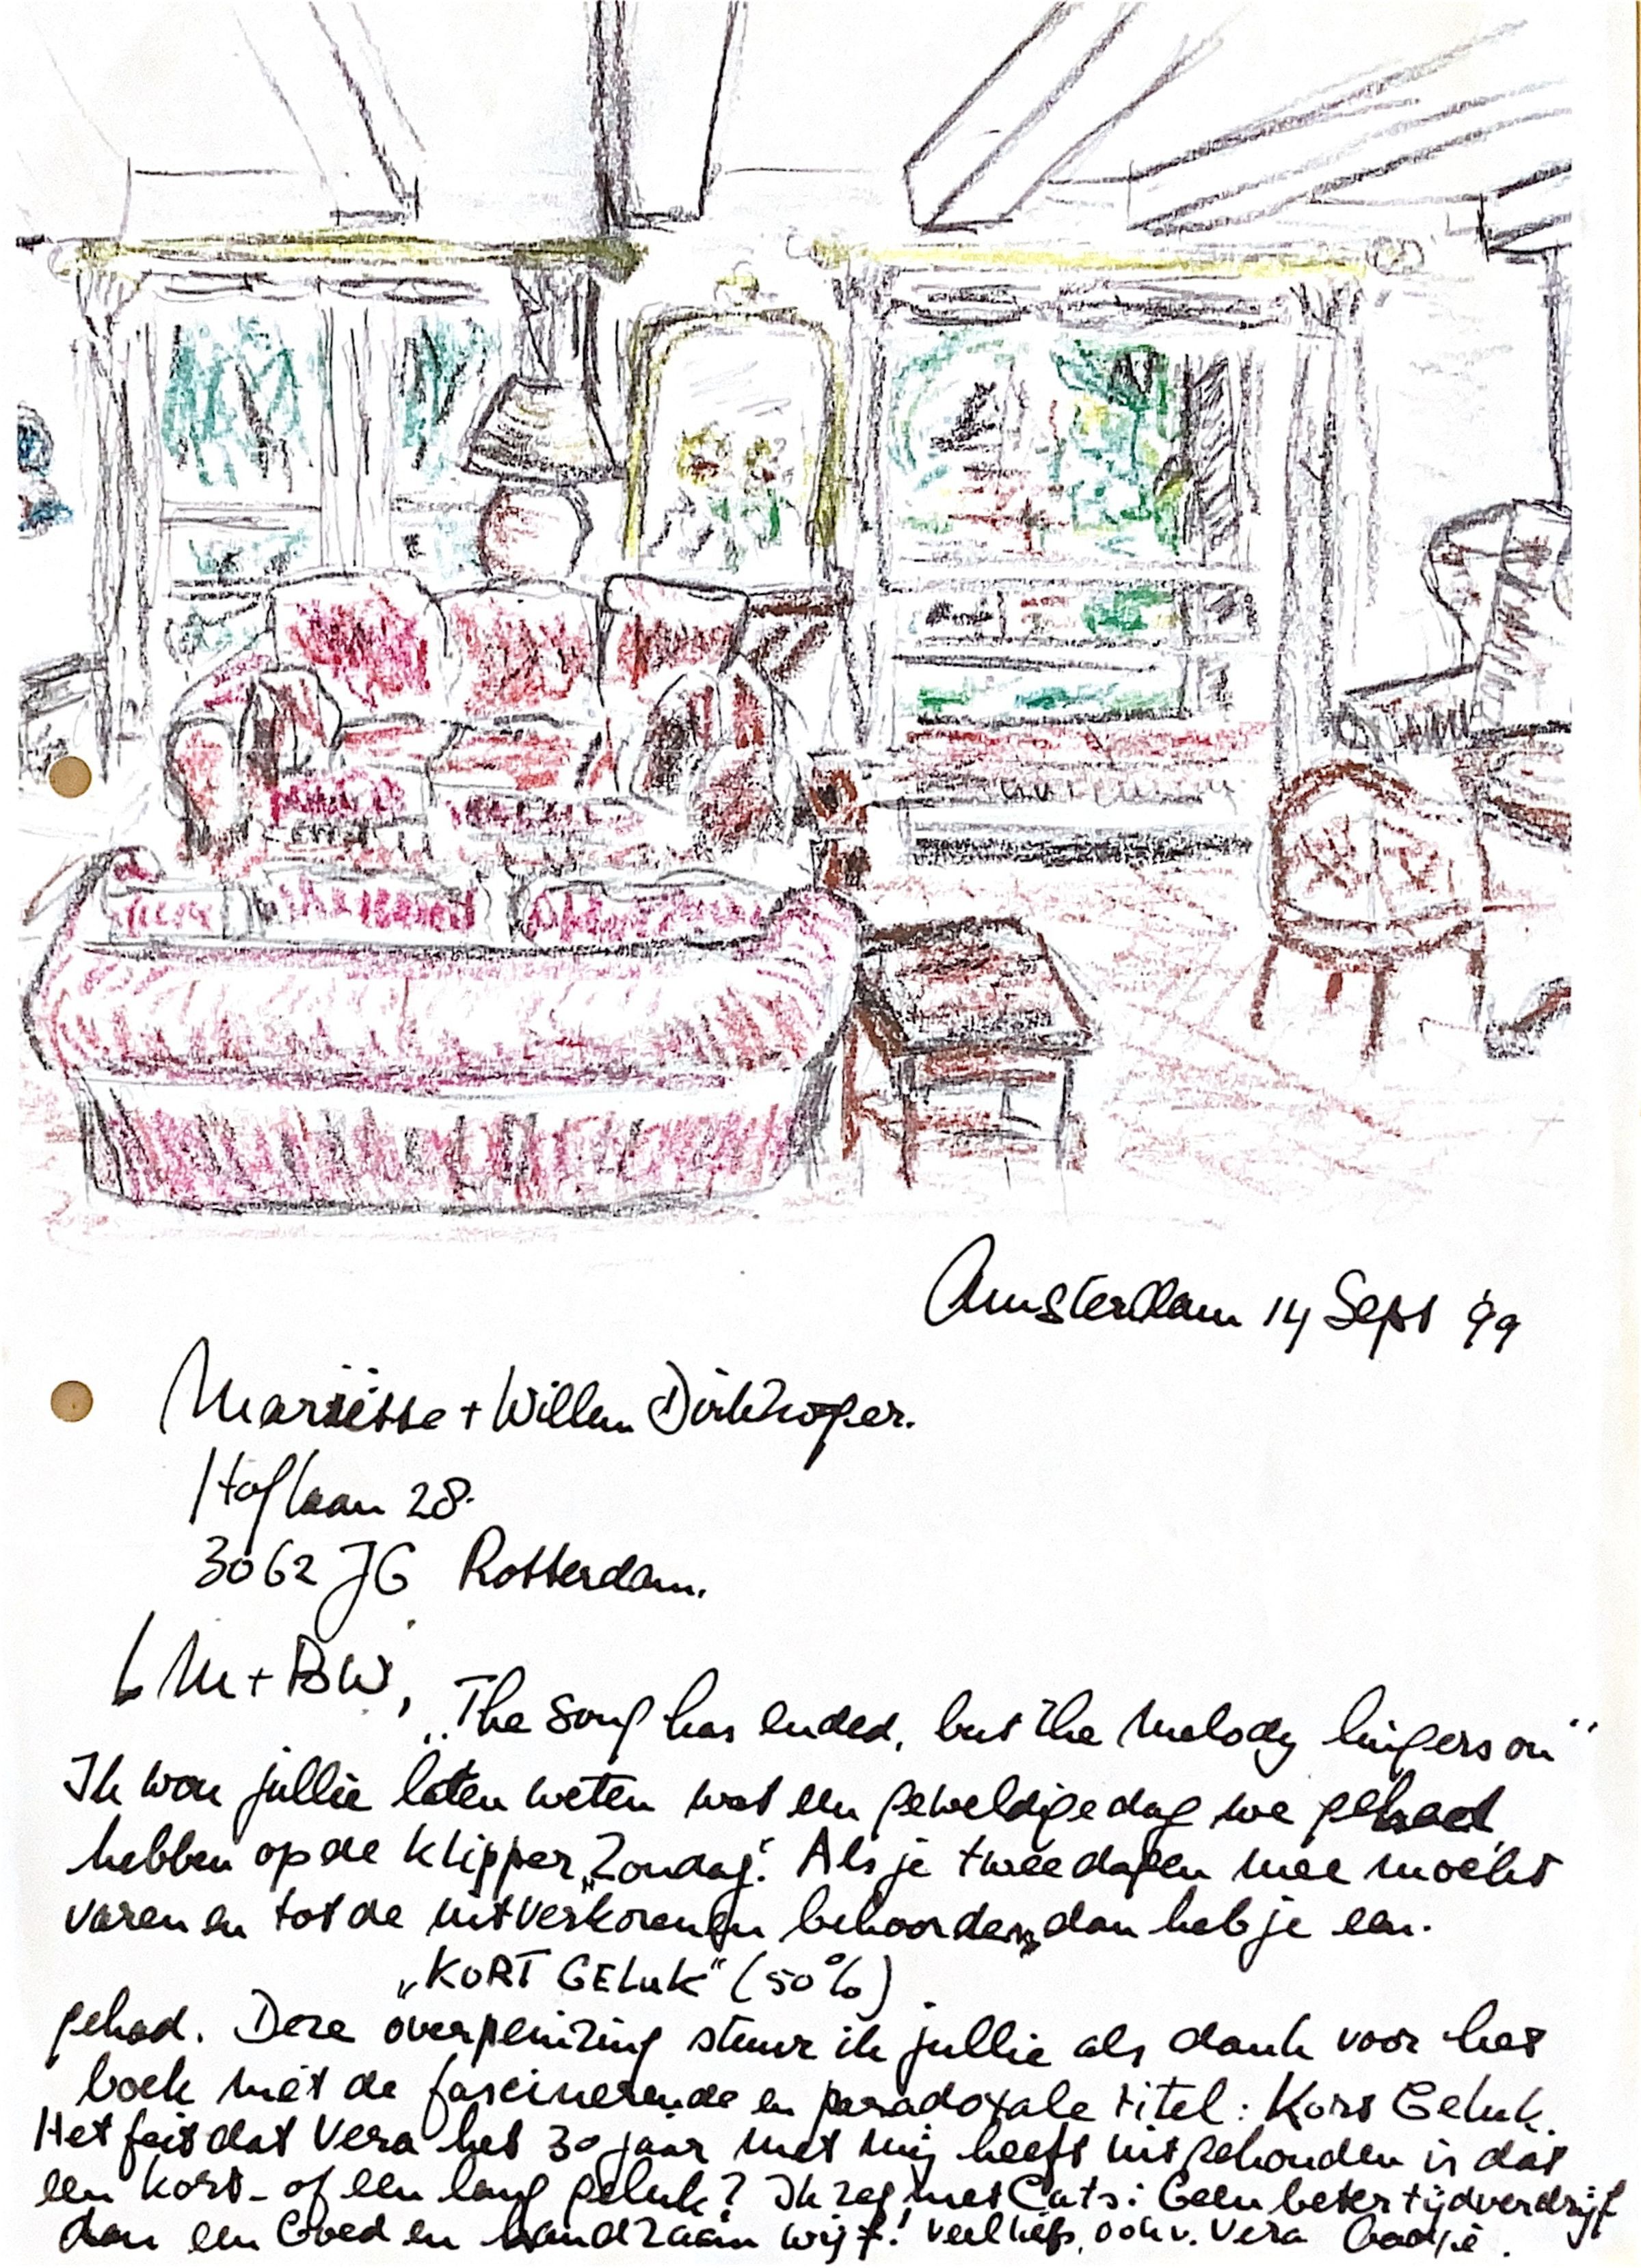 Amsterdam 14 Sept '99
+ Willem Dirkzwager.
Hoflaan 28.
3062 JG Rotterdam.
L M + BW,
„The Song has ended, but the melody lingers on"
Ik wou jullie laten weten wat een geweldige dag we gehad
hebben op de klipper „Zondag". Als je twee dagen mee mocht
varen en tot de uitverkorenen behoorden, dan heb je een.
„KORT GELUK" (50%)
gehad. Deze overpeinzing stuur ik jullie als dank voor het
boek met de fascinerende en paradoxale titel: Kort Geluk.
Het feit dat Vera het 30 jaar met mij heeft uitgehouden is dat
een kort- of een lang geluk? Ik zeg met Cats: Geen beter tijdverdrijf
dan een Goed en handzaam wijf! veel liefs, ook v. Vera